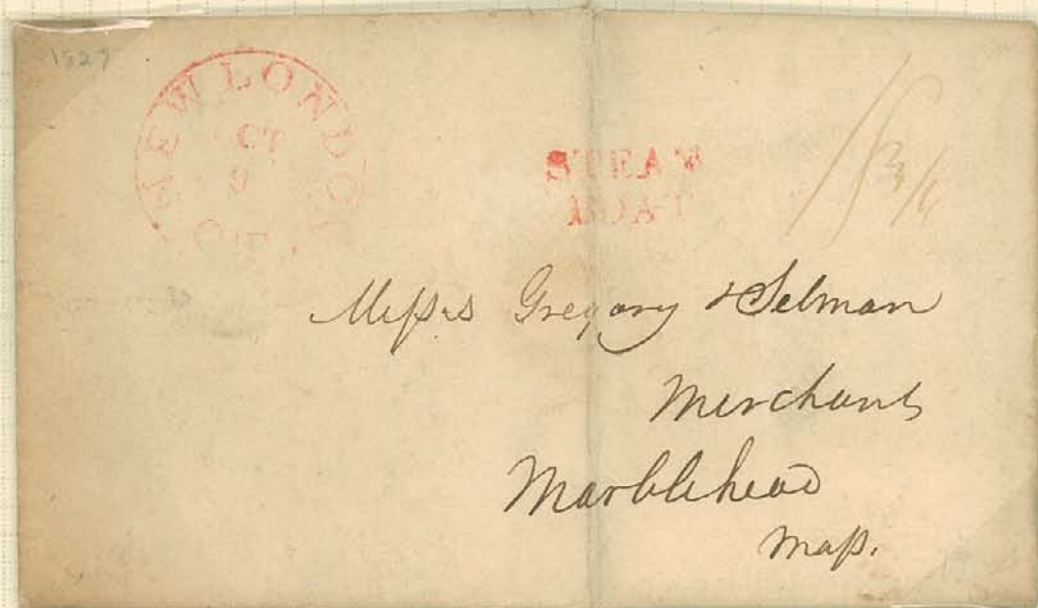 1827
NEW LONDON
CT
OCT
9
STEAM
BOAT
18 3/4
Messrs Gregory & Selman
Merchants
Marblehead
Mass.